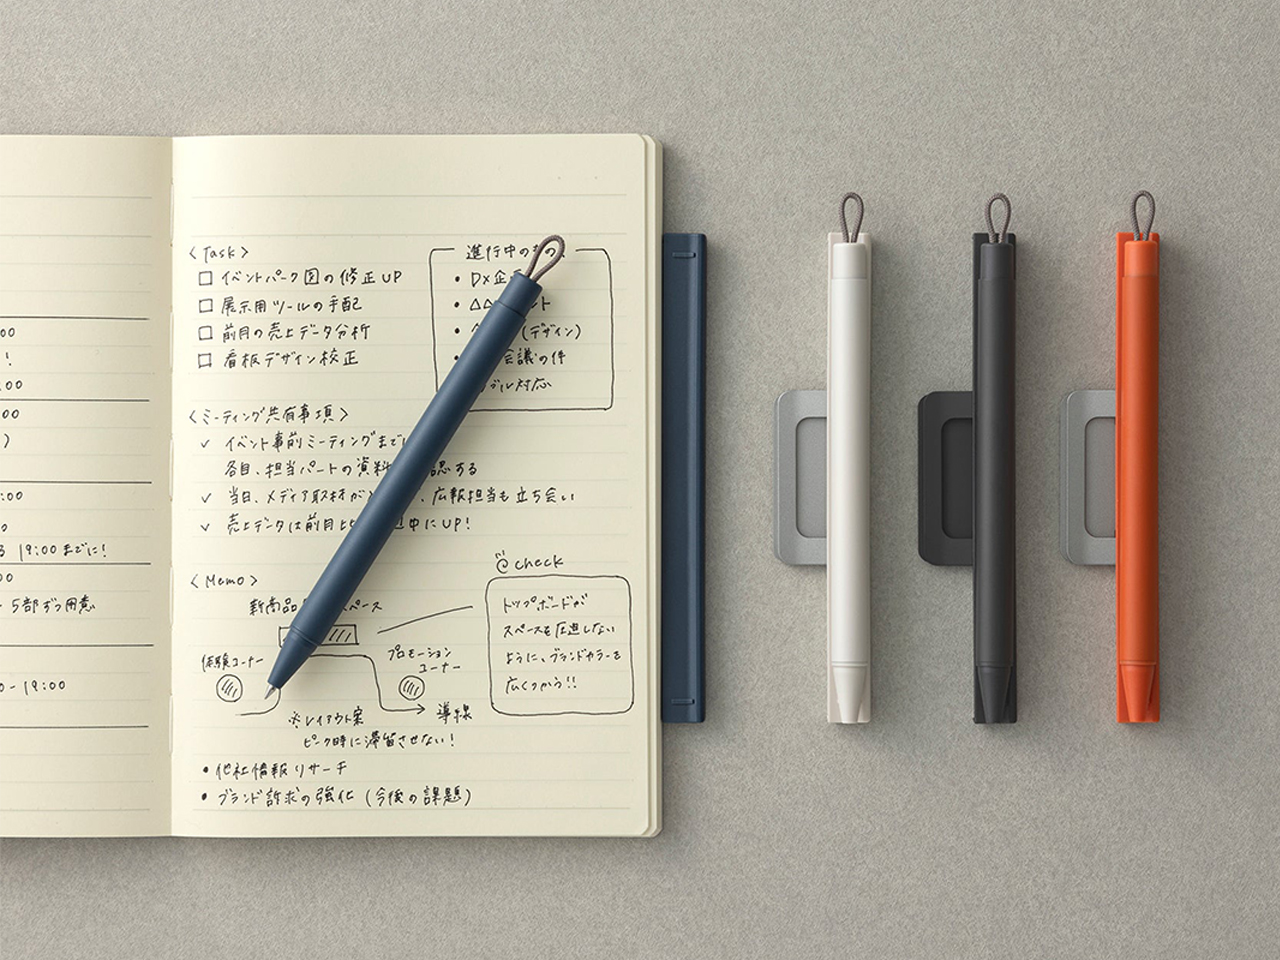 :00
!
:00
:00
)
:00
19:00までに!
00
5部ずつ用意
0-19:00
〈Task〉
□ イベントパーク図の修正UP
□ 展示用ツールの手配
□ 前月の売上データ分析
□ 看板デザイン校正
進行中の
・DX企
・△△ ント
・ (デザイン)
・ 会議の件
ブル対応
〈ミーティング共有事項〉
✓ イベント事前ミーティングまでに
各自、担当パートの資料 認する
✓ 当日、メディア取材が 、広報担当も立ち会い
✓ 売上データは前月比 中にUP!
〈Memo〉
新商品 スペース
体験コーナー
プロモーションコーナー
※レイアウト案
導線
ピーク時に滞留させない!
check
トップボードが
スペースを圧迫しない
ように、ブランドカラーを
広くつかう!!
・他社情報リサーチ
・ブランド訴求の強化(今後の課題)